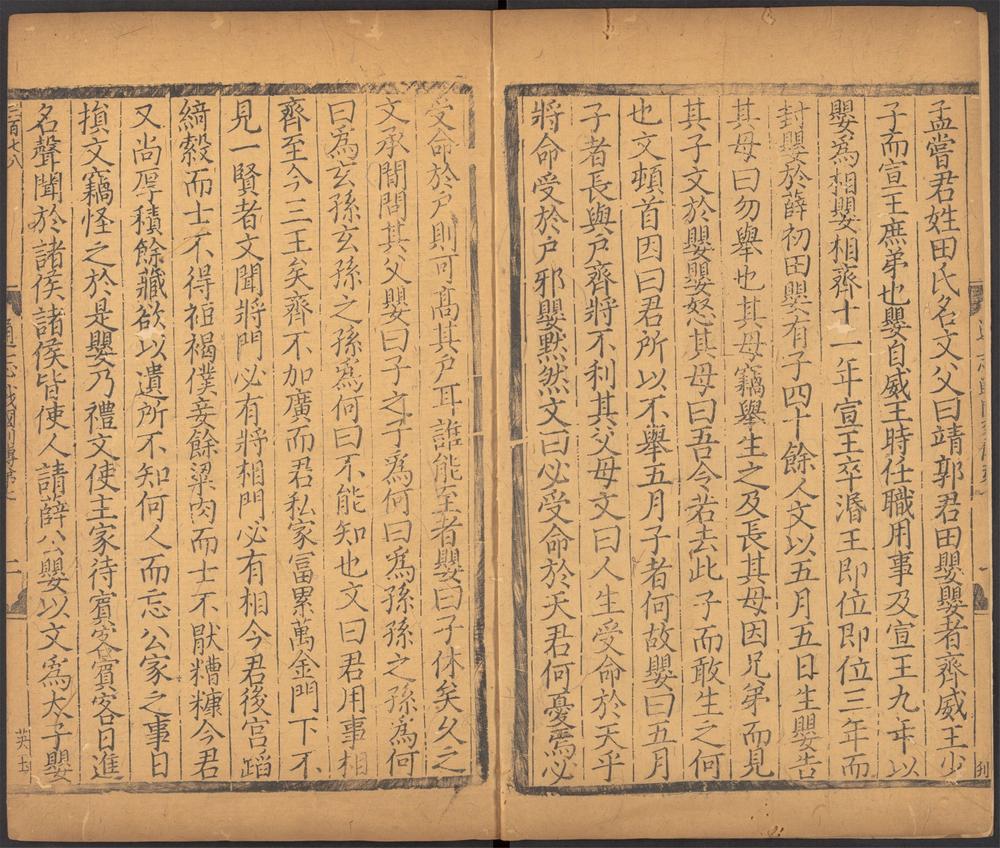 孟嘗君姓田氏名文父曰靖郭君田嬰嬰者齊威王少
子而宣王庶弟也嬰自威王時任職用事及宣王九年以
嬰爲相嬰相齊十一年宣王卒湣王即位即位三年而
封嬰於薛初田嬰有子四十餘人文以五月五日生嬰告
其母曰勿舉也其母竊舉生之及長其母因兄弟而見
其子文於嬰嬰怒其母曰吾令若去此子而敢生之何
也文頓首因曰君所以不舉五月子者何故嬰曰五月
子者長與戸齊將不利其父母文曰人生受命於天乎
將命受於戸邪嬰黙然文曰必受命於天君何憂焉必
刋
受命於戸則可髙其戸耳誰能至者嬰曰子休矣乆之
文承間問其父嬰曰子之子爲何曰爲孫孫之孫爲何
曰爲玄孫玄孫之孫爲何曰不能知也文曰君用事相
齊至今三王矣齊不加廣而君私家冨累萬金門下不
見一賢者文聞將門必有將相門必有相今君後宮蹈
綺縠而士不得裋褐僕妾餘粱肉而士不厭糟糠今君
又尚厚積餘藏欲以遺所不知何人而忘公家之事日
損文竊怪之於是嬰乃禮文使主家待賔客賔客日進
名聲聞於諸侯諸侯皆使人請薛公嬰以文爲太子嬰
通志戰國列傳